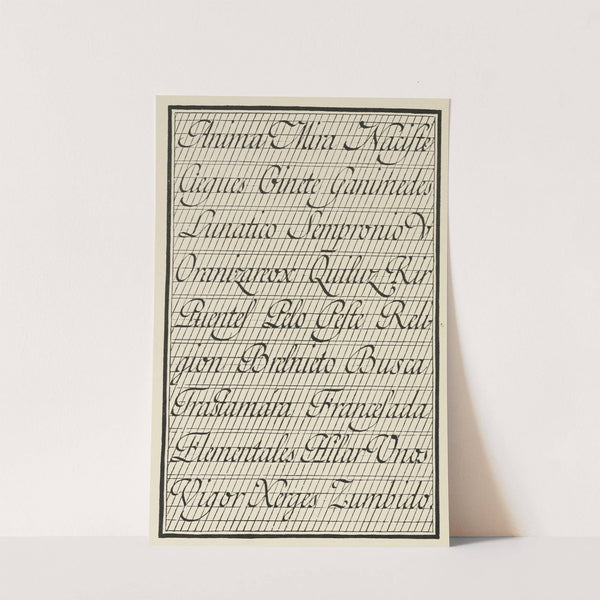 Anima Mira Naçiste
Çiegues Ginete Ganimedes
Lunatico Sempronio V
Oranizareox Quiluz Kir
Puentes Pelo Peste Reli-
gion Brebnieto Busca
Trastamára Francessada
Elementales Hilar Vnos
Vigor Xerges Zumbido.